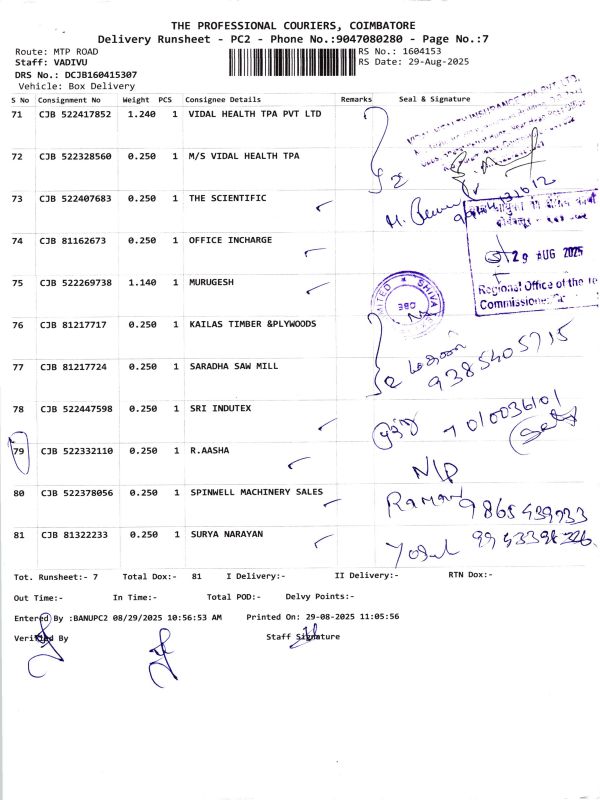 THE PROFESSIONAL COURIERS, COIMBATORE
Delivery Runsheet - PC2 - Phone No.:9047080280 - Page No.:7
Route: MTP ROAD RS No.: 1604153
Staff: VADIVU RS Date: 29-Aug-2025
DRS No.: DCJB160415307
Vehicle: Box Delivery
S No Consignment No Weight PCS Consignee Details Remarks Seal & Signature
71 CJB 522417852 1.240 1 VIDAL HEALTH TPA PVT LTD
72 CJB 522328560 0.250 1 M/S VIDAL HEALTH TPA
73 CJB 522407683 0.250 1 THE SCIENTIFIC
74 CJB 81162673 0.250 1 OFFICE INCHARGE
29 AUG 2025
Regional Office of the
Commissioner
75 CJB 522269738 1.140 1 MURUGESH
76 CJB 81217717 0.250 1 KAILAS TIMBER &PLYWOODS
77 CJB 81217724 0.250 1 SARADHA SAW MILL
2 9385405715
78 CJB 522447598 0.250 1 SRI INDUTEX
7010036101
79 CJB 522332110 0.250 1 R.AASHA
N/P
80 CJB 522378056 0.250 1 SPINWELL MACHINERY SALES
Raman
81 CJB 81322233 0.250 1 SURYA NARAYAN
Tot. Runsheet:- 7 Total Dox:- 81 I Delivery:- II Delivery:- RTN Dox:-
Out Time:- In Time:- Total POD:- Delvy Points:-
Entered By :BANUPC2 08/29/2025 10:56:53 AM Printed On: 29-08-2025 11:05:56
Verified By Staff Signature